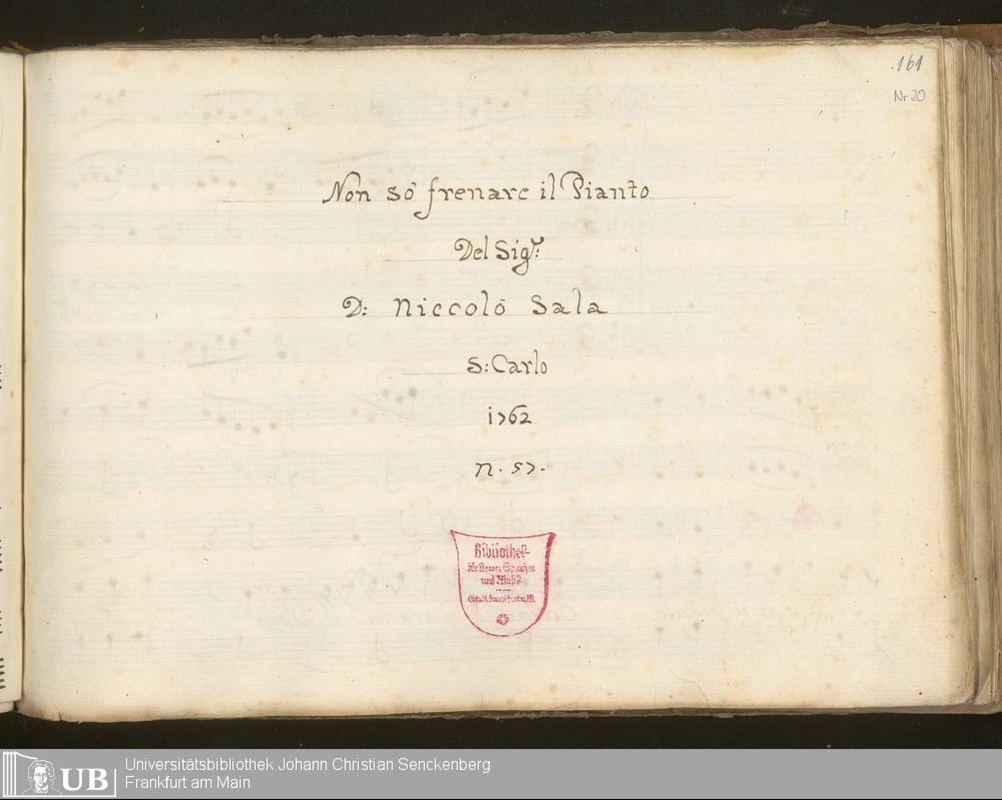 161
Nr 20
Non só frenare il Pianto
Del Sigr:
D: Niccolò Sala
S: Carlo
1762
n. 57.
Bibliothek
für Neuere Sprachen
und Musik
UB
Universitätsbibliothek Johann Christian Senckenberg
Frankfurt am Main